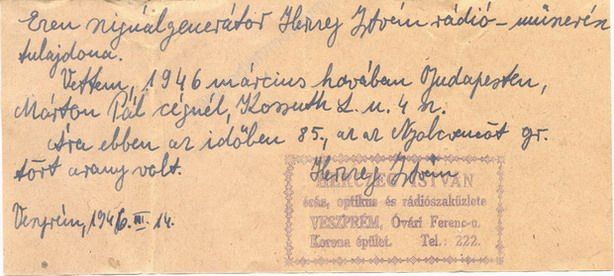 Ezen signálgenerátor Herceg István rádió-műszerész
tulajdona.
Vettem, 1946 március havában Budapesten,
Márton Pál cégnél, Kossuth L. u. 4 sz.
Ára ebben az időben 85, az az Nyolcvanöt gr.
tört arany volt.
Herceg István
HERCZEG ISTVÁN
órás, optikus és rádiószaküzlete
VESZPRÉM, Óvári Ferenc-u.
Korona épület. Tel.: 222.
Veszprém, 1946. III. 14.